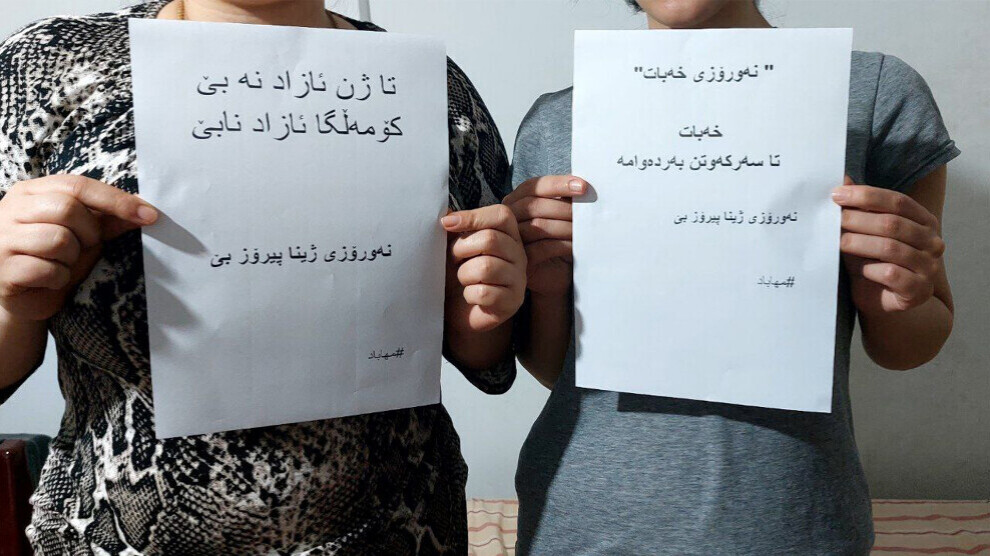 تا ژن ئازاد نه بێ
کۆمه‌ڵگا ئازاد نابێ
نه‌ورۆزی ژینا پیرۆز بێ
#مهاباد
" نه‌ورۆزی خه‌بات"
خه‌بات
تا سه‌رکه‌وتن به‌رده‌وامه
نه‌ورۆزی ژینا پیرۆز بێ
#مهاباد